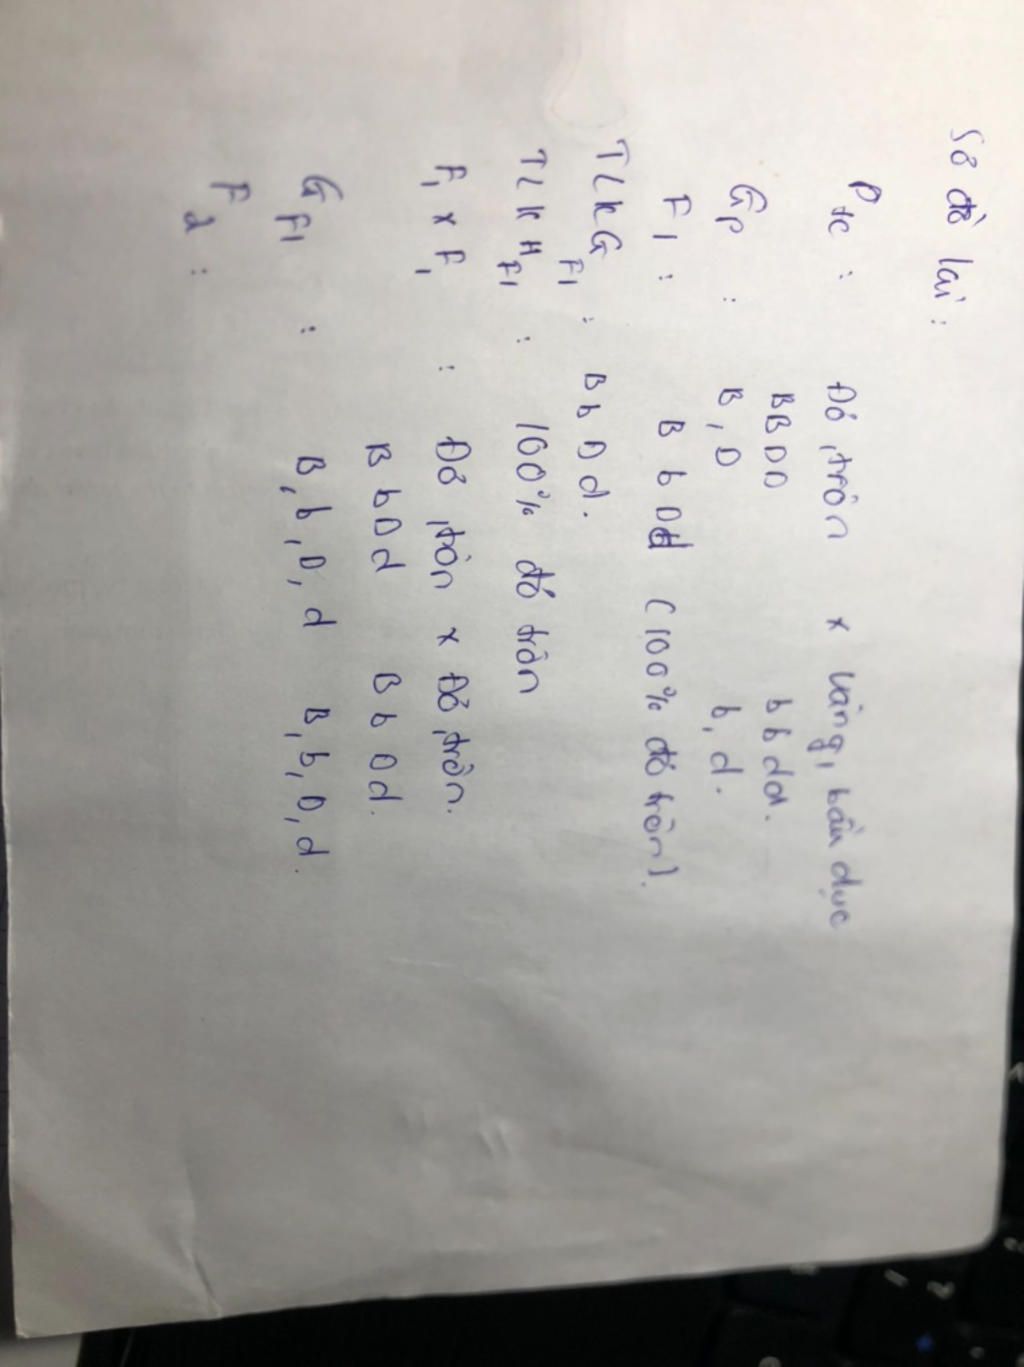 Sơ đồ lai:
Ptc: Đỏ, tròn x vàng, bầu dục
BBDD bbdd.
Gp: B, D b, d.
F1: BbDd (100% đỏ tròn).
TLKG F1: BbDd.
TLKH F1: 100% đỏ tròn
F1 x F1: Đỏ, tròn x Đỏ, tròn.
BbDd BbDd.
G F1: B, b, D, d B, b, D, d.
F2: